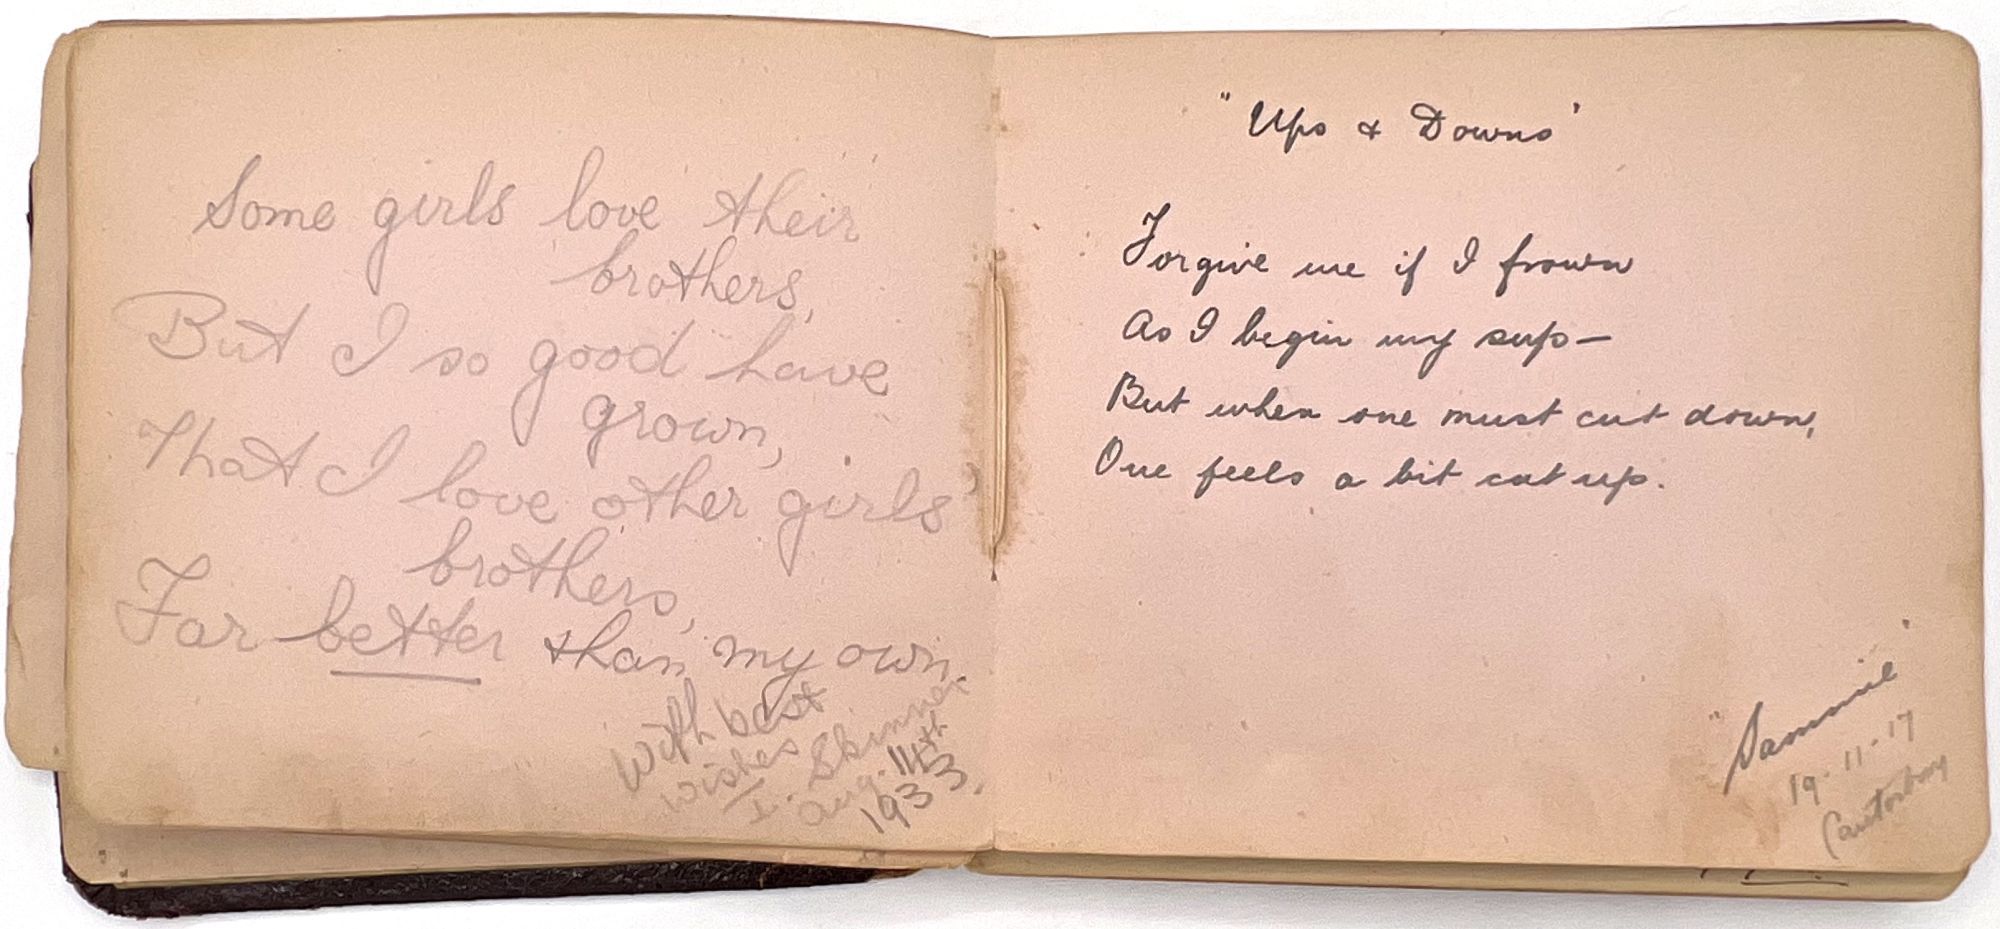 Some girls love their
brothers,
But I so good have
grown,
That I love other girls'
brothers,
Far better than my own.
With best
wishes
I. Skinner
Aug. 14th
1933.
"Ups & Downs"
Forgive me if I frown
As I begin my sup—
But when one must cut down,
One feels a bit cut up.
"Sammie"
19-11-17
Canterbury